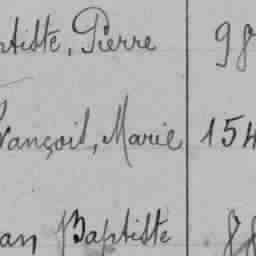 ptiste, Pierre 98
François, Marie 154
an Baptiste 88